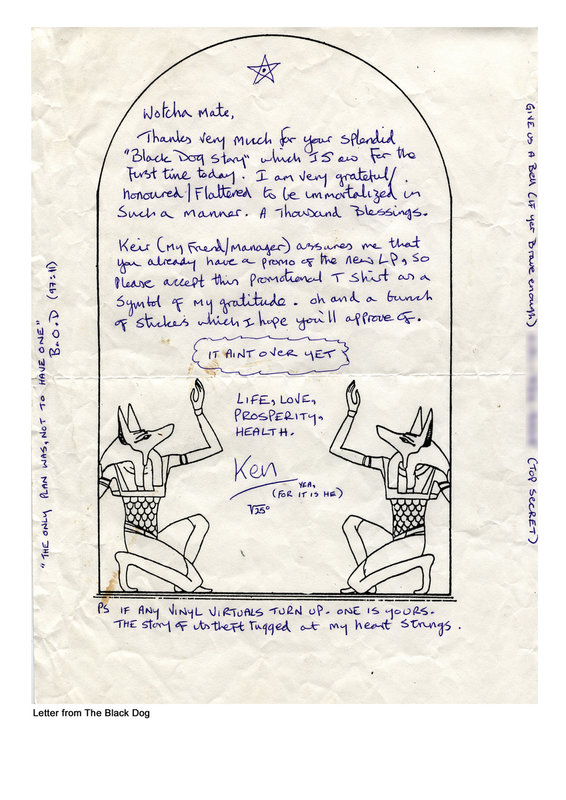 Wotcha Mate,
Thanks very much for your splendid
"Black Dog Story" which I saw for the
first time today. I am very grateful/
honoured/Flattered to be immortalized in
Such a manner. A Thousand Blessings.
Keir (My Friend/Manager) assures me that
you already have a promo of the new LP, so
Please accept this promotional T Shirt as a
Symbol of my gratitude. oh and a bunch
of stickers which I hope you'll approve of.
IT AINT OVER YET
LIFE, LOVE,
PROSPERITY,
HEALTH.
Ken
YEA,
(FOR IT IS HE)
PS IF ANY VINYL VIRTUALS TURN UP. ONE IS YOURS.
THE STORY OF its theft Tugged at my heart strings.
"THE ONLY PLAN WAS, NOT TO HAVE ONE"
B.O.D (97:11)
GIVE US A Bell (IF yer Brave enough)
(TOP SECRET)
Letter from The Black Dog